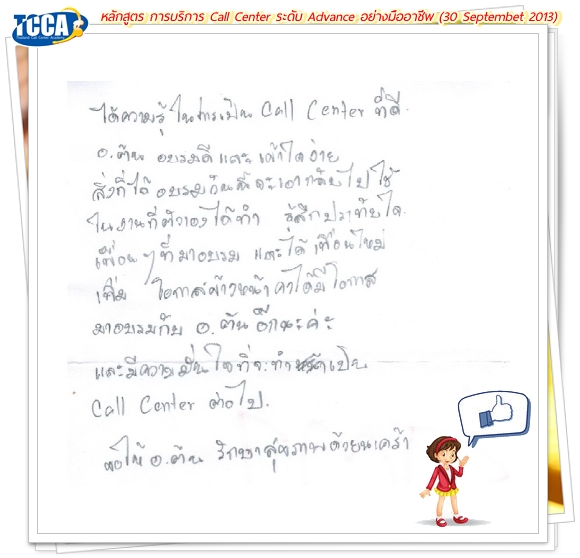 TCCA
Thailand Call Center Academy
หลักสูตร การบริการ Call Center ระดับ Advance อย่างมืออาชีพ (30 Septembet 2013)
ได้ความรู้ในการเป็น Call Center ที่ดี
อ.ต้น อบรมดีและเข้าใจง่าย
สิ่งที่ได้อบรมวันนี้จะเอากลับไปใช้
ในงานที่ตัวเองได้ทำ รู้สึกประทับใจ
เพื่อนๆ ที่มาอบรม และได้เพื่อนใหม่
เพิ่ม โอกาสข้างหน้าคงได้มีโอกาส
มาอบรมกับ อ.ต้นอีกนะค่ะ
และมีความมั่นใจที่จะทำ เป็น
Call Center ต่อไป.
ขอให้ อ.ต้น รักษาสุขภาพด้วยนะคร้า